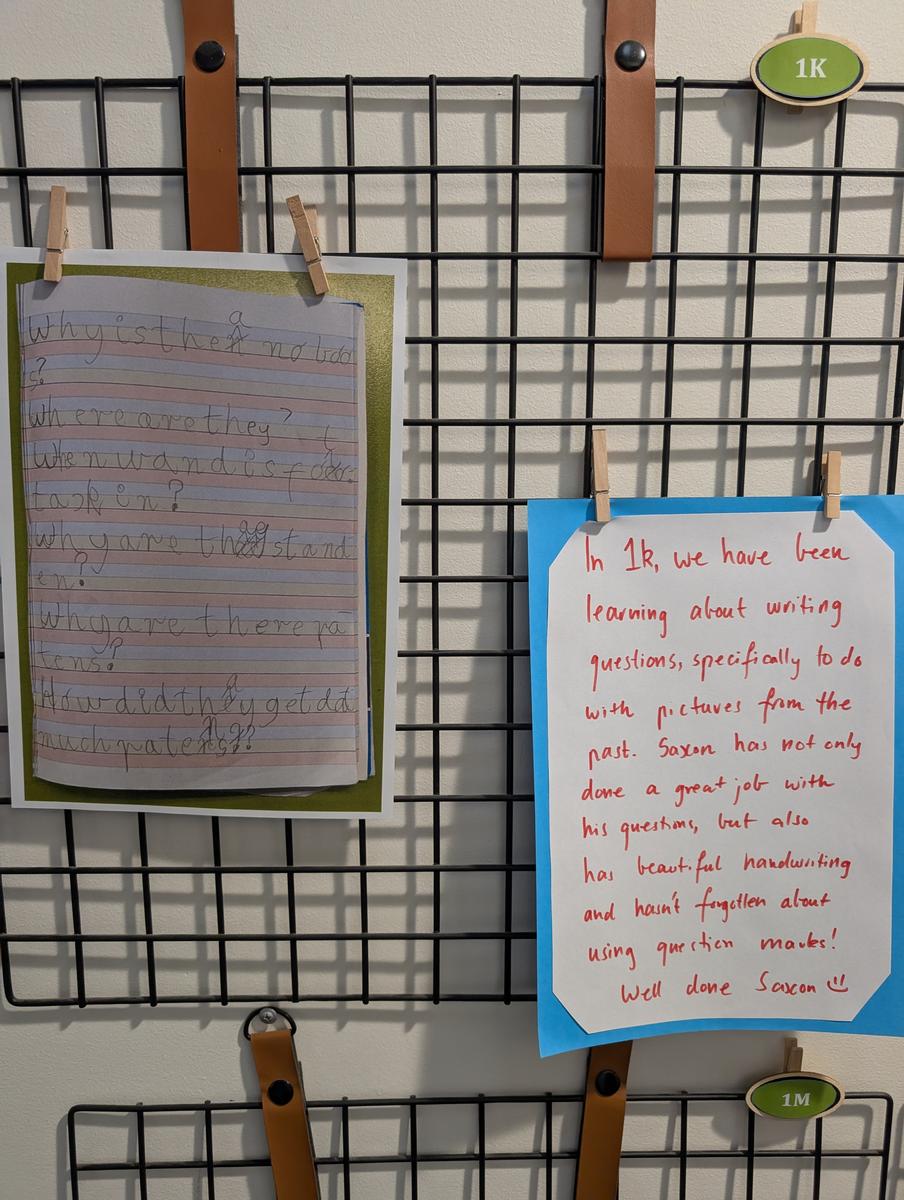 1K
Why is the no
s?
Where are they?
When wand is
task in?
Why are stand
en?
Why are there pa
tens?
How did they get
much patens?
In 1k, we have been
learning about writing
questions, specifically to do
with pictures from the
past. Saxon has not only
done a great job with
his questions, but also
has beautiful handwriting
and hasn't forgotten about
using question marks!
Well done Saxon
1M